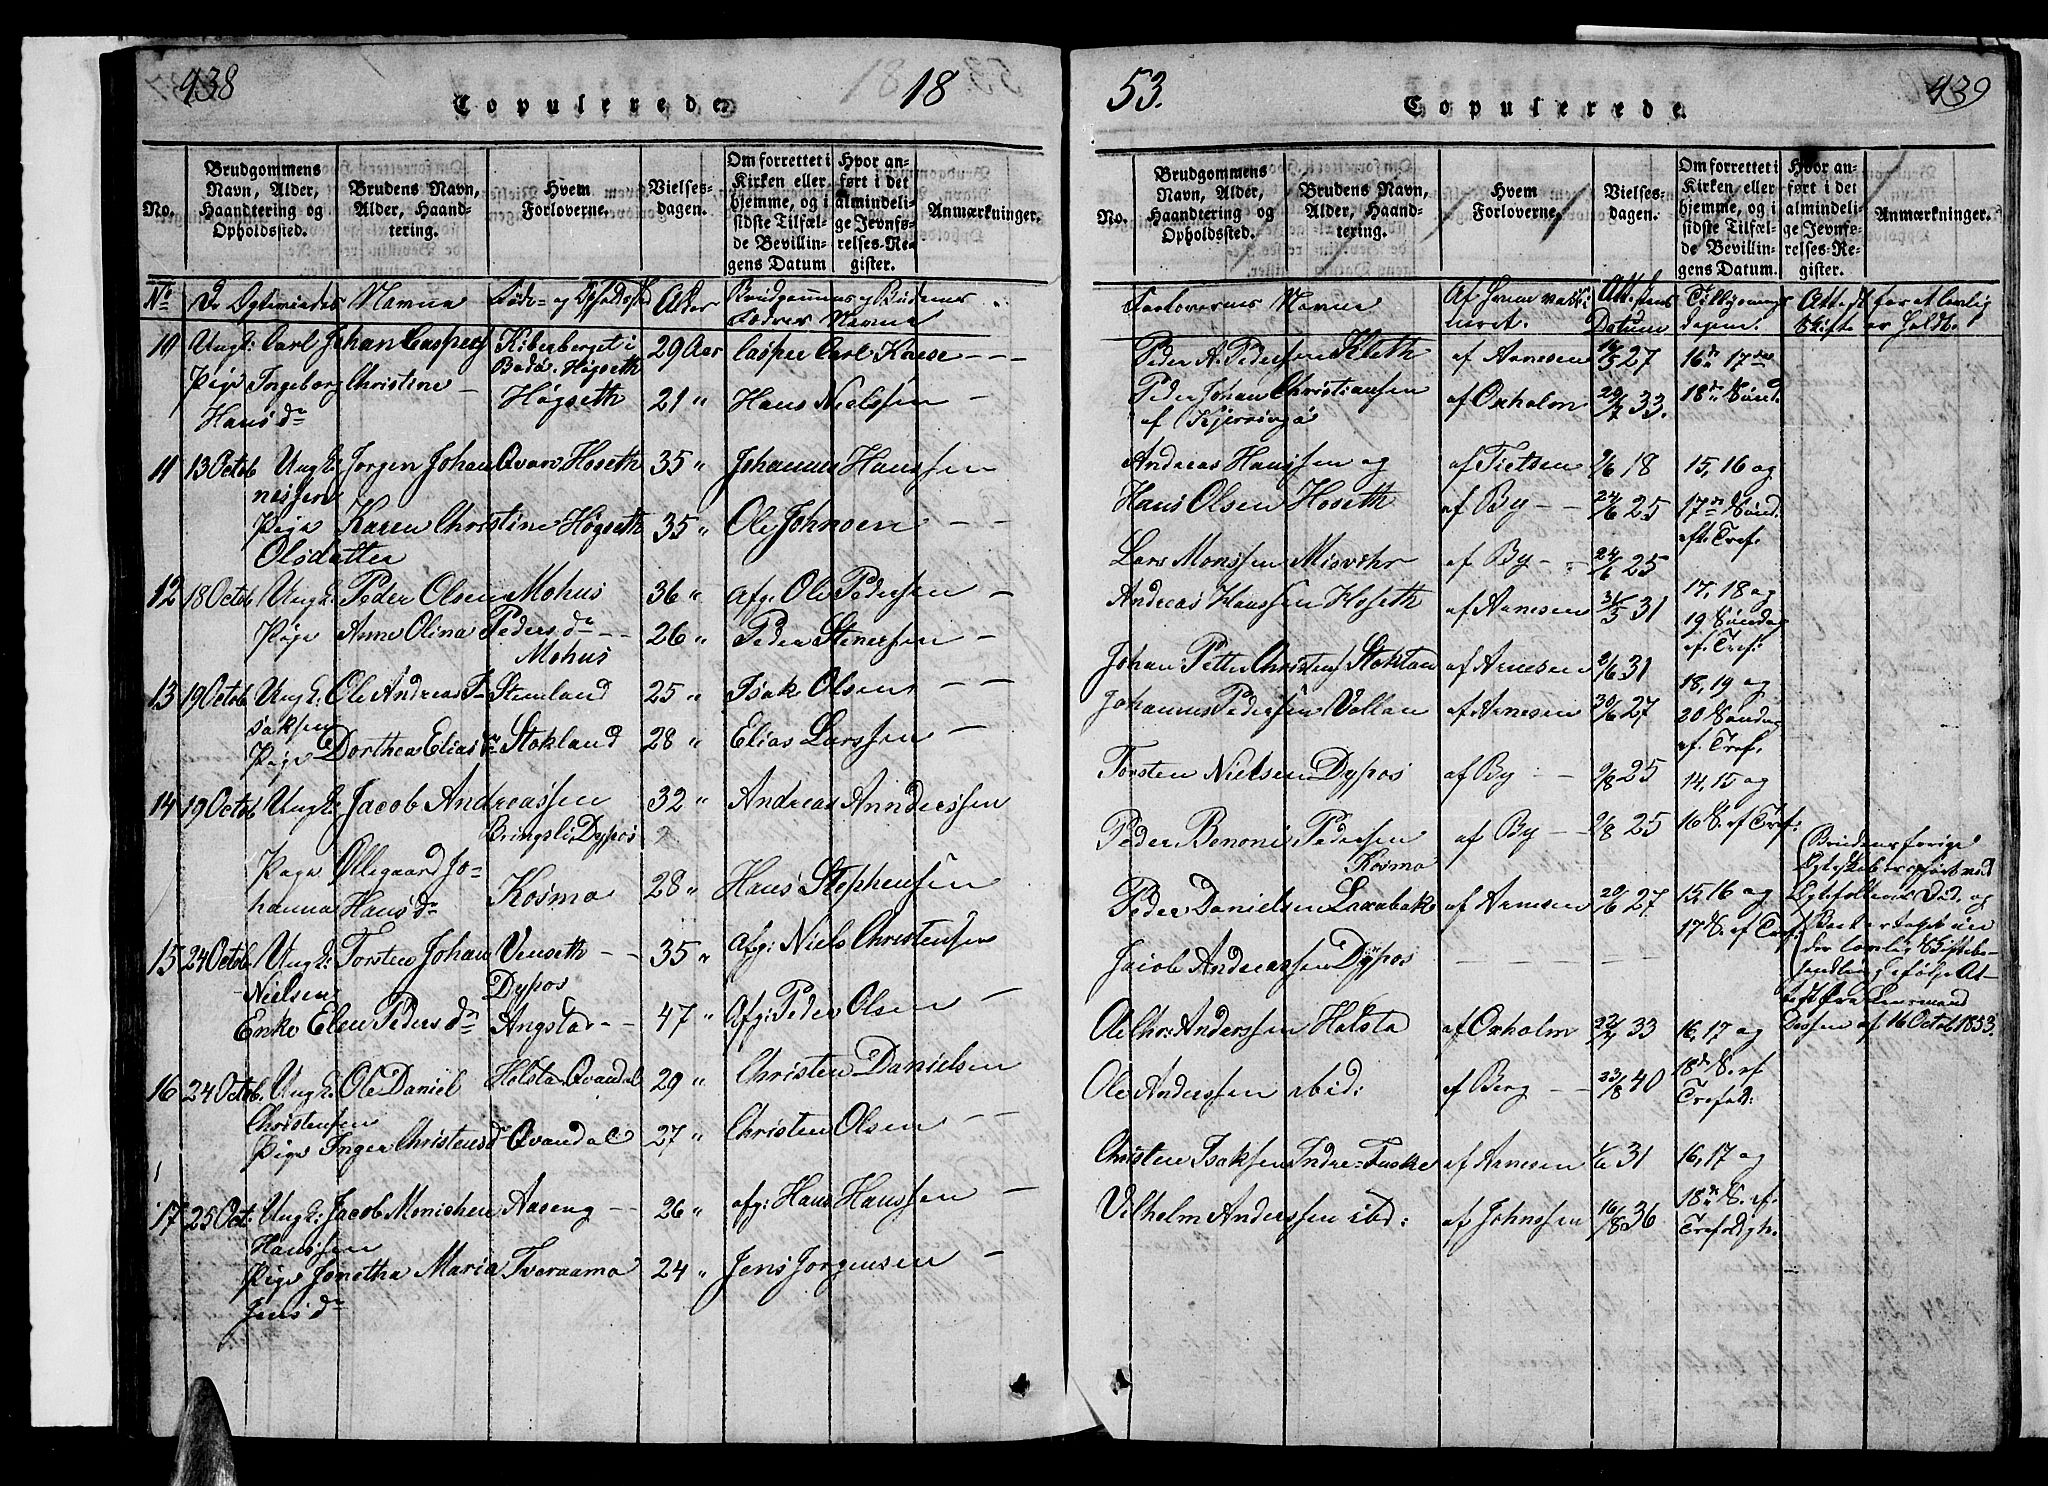 438
Copulerede
18
No.
Brudgommens Navn, Alder, Haandtering og Opholdssted.
Brudens Navn, Alder, Haandtering.
Hvem Forloverne.
Vielsesdagen.
Om forrettet i Kirken eller hjemme, og i sidste Tilfælde Bevillingens Datum
Hvor anført i det almindelige Jevnførelses-Register.
Anmærkninger.
No De Egteviedes Navne Føde- og Opholdssted Alder Brudgommens og Brudens Fædres Navne
10 Ungk: Carl Johan Caspers Kiberberget i Bodø. Høgseth 29 Aar Casper Carl Kaese
Pige Ingeborg Christine Hans dr Høgseth 21 " Hans Nielssen
11 13 Octob. Ungk: Jørgen Johannessen Qvan Hoseth 35 " Johannes Hanssen
Pige Karen Christine Olsdatter Høgseth 35 " Ole Johnsen
12 18 Octob. Ungk: Peder Olsen Mohus 36 " Afg: Ole Pedersen
Pige Anne Olina Peders dr Mohus 26 " Peder Stenersen
13 19 Octob. Ungk: Ole Andreas Isaksen Stemland 25 " Isak Olsen
Pige Dorthea Elias dr Stokland 28 " Elias Larssen
14 19 Octob. Ungk: Jacob Andreassen Bringsli Dypos 32 " Andreas Annderssen
Pige Ollegaard Johanna Hans dr Kosmo 28 " Hans Stephensen
15 24 Octob. Ungk: Torsten Johan Nielsen Venseth Dypos 35 " Afg: Niels Christensen
Enke Elen Peders dr Angstad 47 " Afg: Peder Olsen
16 24 Octob. Ungk. Ole Daniel Christensen Holstad Qvandal 29 " Christen Danielsen
Pige Inger Christens dr Qvandal 27 " Christen Olsen
17 25 Oct: Ungk: Jacob Monichen Hanssen Aaseng 26 " afg: Hans Hanssen
Pige Jonetha Maria Jens dr Tveraamo 24 " Jens Jorgensen
53.
Copulerede
439
No.
Brudgommens Navn, Alder, Haandtering og Opholdssted.
Brudens Navn, Alder, Haandtering.
Hvem Forloverne.
Vielsesdagen.
Om forrettet i Kirken eller hjemme, og i sidste Tilfælde Bevillingens Datum.
Hvor anført i det almindelige Jevnførelses-Register.
Anmærkninger.
Forlovernes Navne Af hvem vaccineret. Attestens Datum Tillysningsdagene. Attest for at lovlig Skifte er holdt.
Peder A. Pedersen Kleth af Arnesen 27 16de 17de
Peder Johan Christiansen af Kjerringø af Oxholm 33. 18de Sønd.
Andreas Hanssen og af Tietsen 18 15, 16 og
Hans Olsen Hoseth af By 24/6 25 17de Sønd. eft. Tref.
Lars Monssen Misvær af By 24/6 25
Andreas Hanssen Hoseth af Arnesen 31 17, 18 og 19 Søndag ef. Tref:
Johan Petter Christens Stoklan af Arnesen 31
Johannes Pedersen Vollan af Arnesen 30/6 27 18, 19 og 20 Søndag ef. Tref.
Torsten Nielsen Dypos af By 25 14, 15 og
Peder Benoni Pedersen Kosmo af By 25 16 S. ef Tref:
Peder Danielsen Laxabak af Arnesen 20/6 27 15, 16 og 17 S. ef Tref:
Jacob Andreassen Dypos
Brudens forrige Egteskab er opført med Egtefollenes Død, og Boet er taget under lovlig Skiftebehandling ifølge Attest fra Lensmand Dessen af 16 Octob. 1853.
Ole Chr: Anderssen Holsta af Oxholm 33 16, 17 og
Ole Anderssen ibid: af Berg 23/8 40 18de S. ef Trefold:
Christen Isaksen Indre-Fuske af Arnesen 31 16, 17 og
Vilhelm Anderssen ibd: af Johnssen 16/8 36 18de S. ef. Trefoldgh.